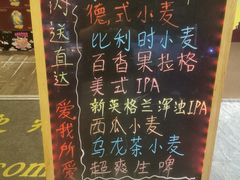 德式小麦
比利时小麦
百香果拉格
美式IPA
新英格兰浑浊IPA
西瓜小麦
乌龙茶小麦
超爽生啤
送直达
爱我所爱
com